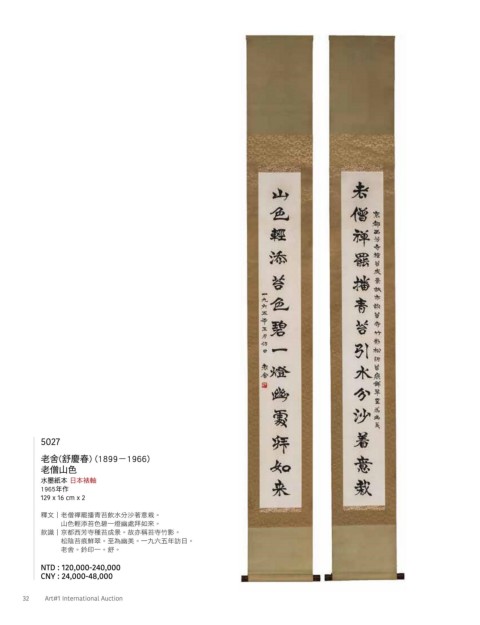 老僧禪罷播青苔引水分沙著意栽
山色輕添苔色碧一燈幽處拜如來
一九六五年
老舍
5027
老舍(舒慶春) (1899－1966)
老僧山色
水墨紙本 日本裱軸
1965年作
129 x 16 cm x 2
釋文｜老僧禪罷播青苔飲水分沙著意栽。
山色輕添苔色碧一燈幽處拜如來。
款識｜京都西芳寺種苔成景，故亦稱苔寺竹影，
松陰苔痕鮮翠，至為幽美。一九六五年訪日。
老舍。鈐印一，舒。
NTD : 120,000-240,000
CNY : 24,000-48,000
32 Art#1 International Auction